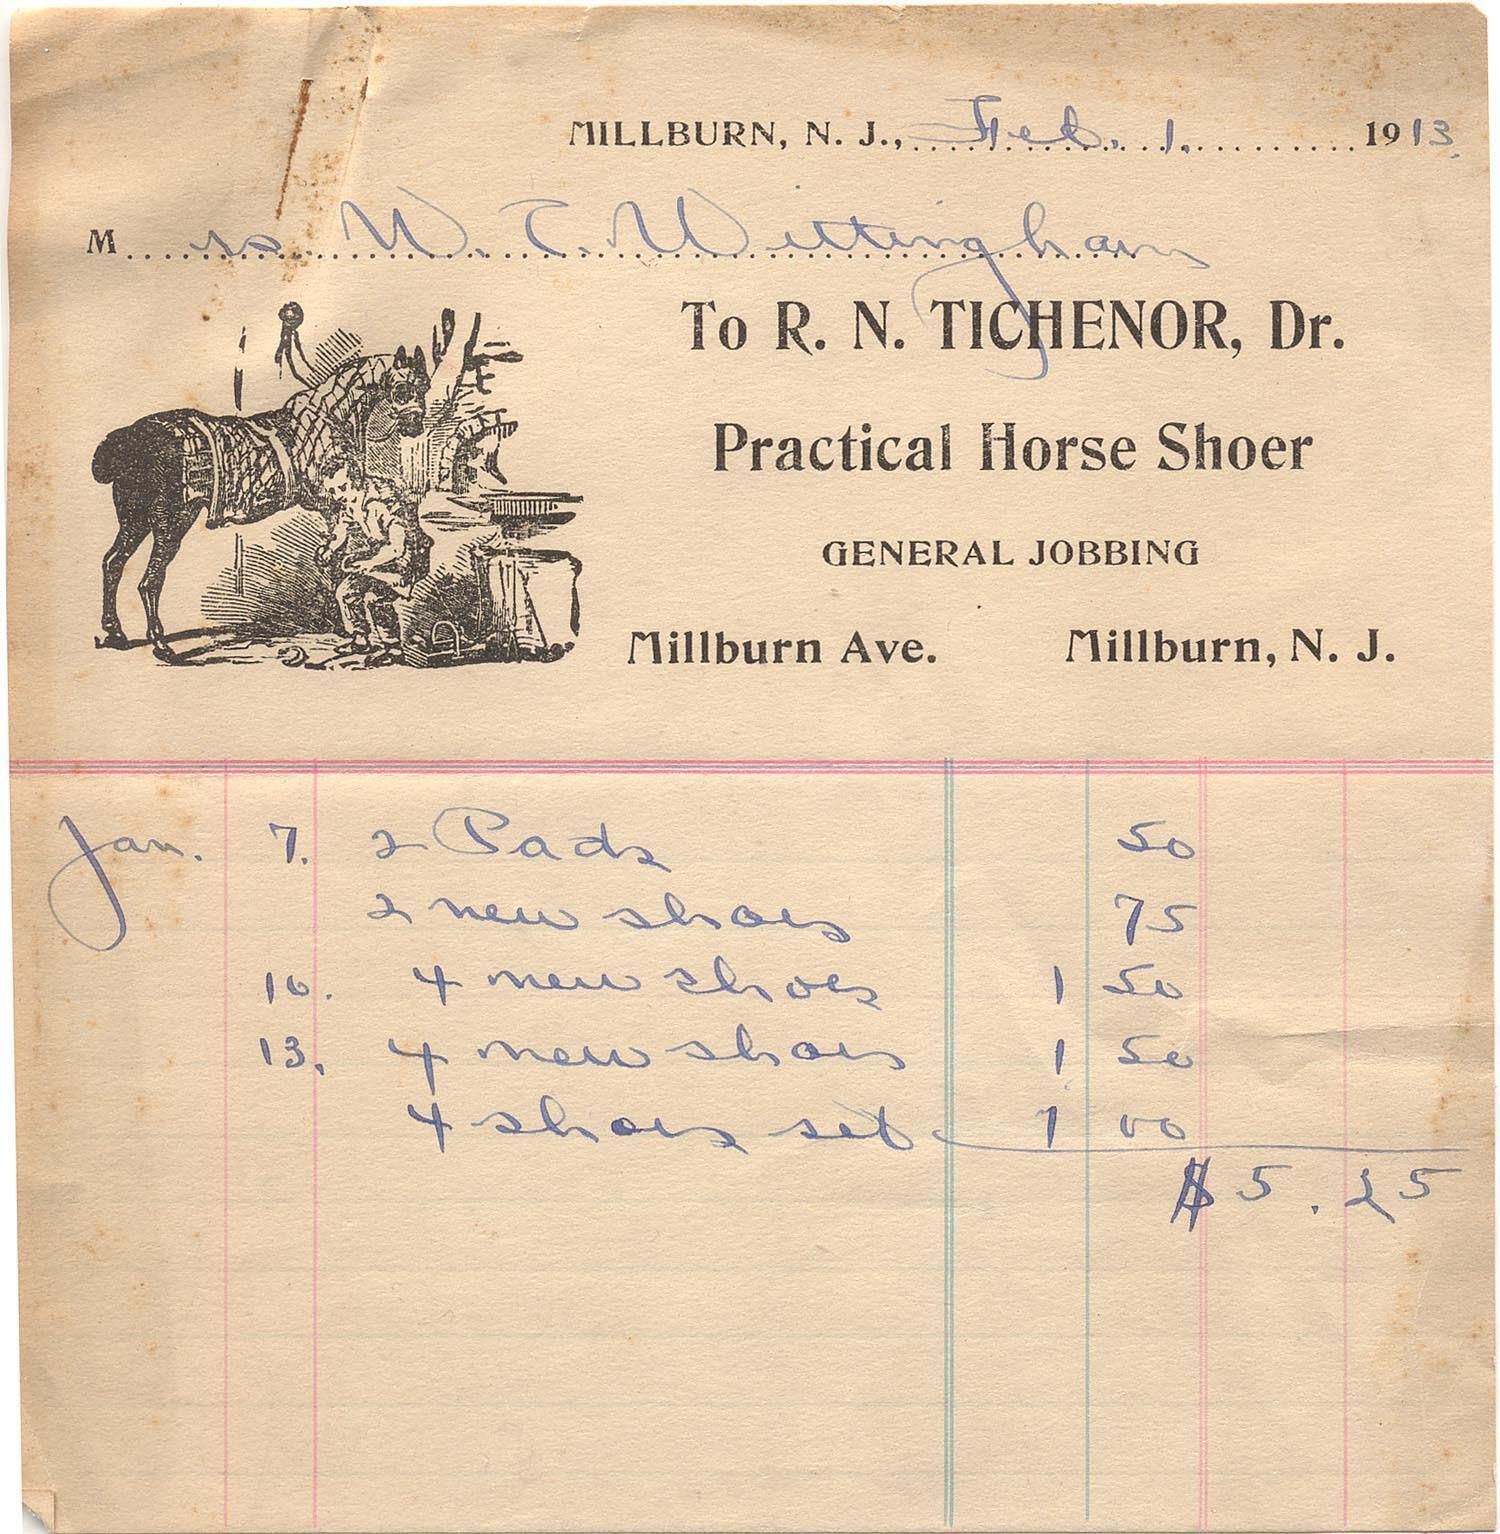 MILLBURN, N. J., Feb. 1. 1913.
Mrs. W. T. Wittingham
To R. N. TICHENOR, Dr.
Practical Horse Shoer
GENERAL JOBBING
Millburn Ave. Millburn, N. J.
Jan. 7. 2 Pads 50
2 new shoes 75
10. 4 new shoes 1 50
13. 4 new shoes 1 50
4 shoes set 1 00
$5.25